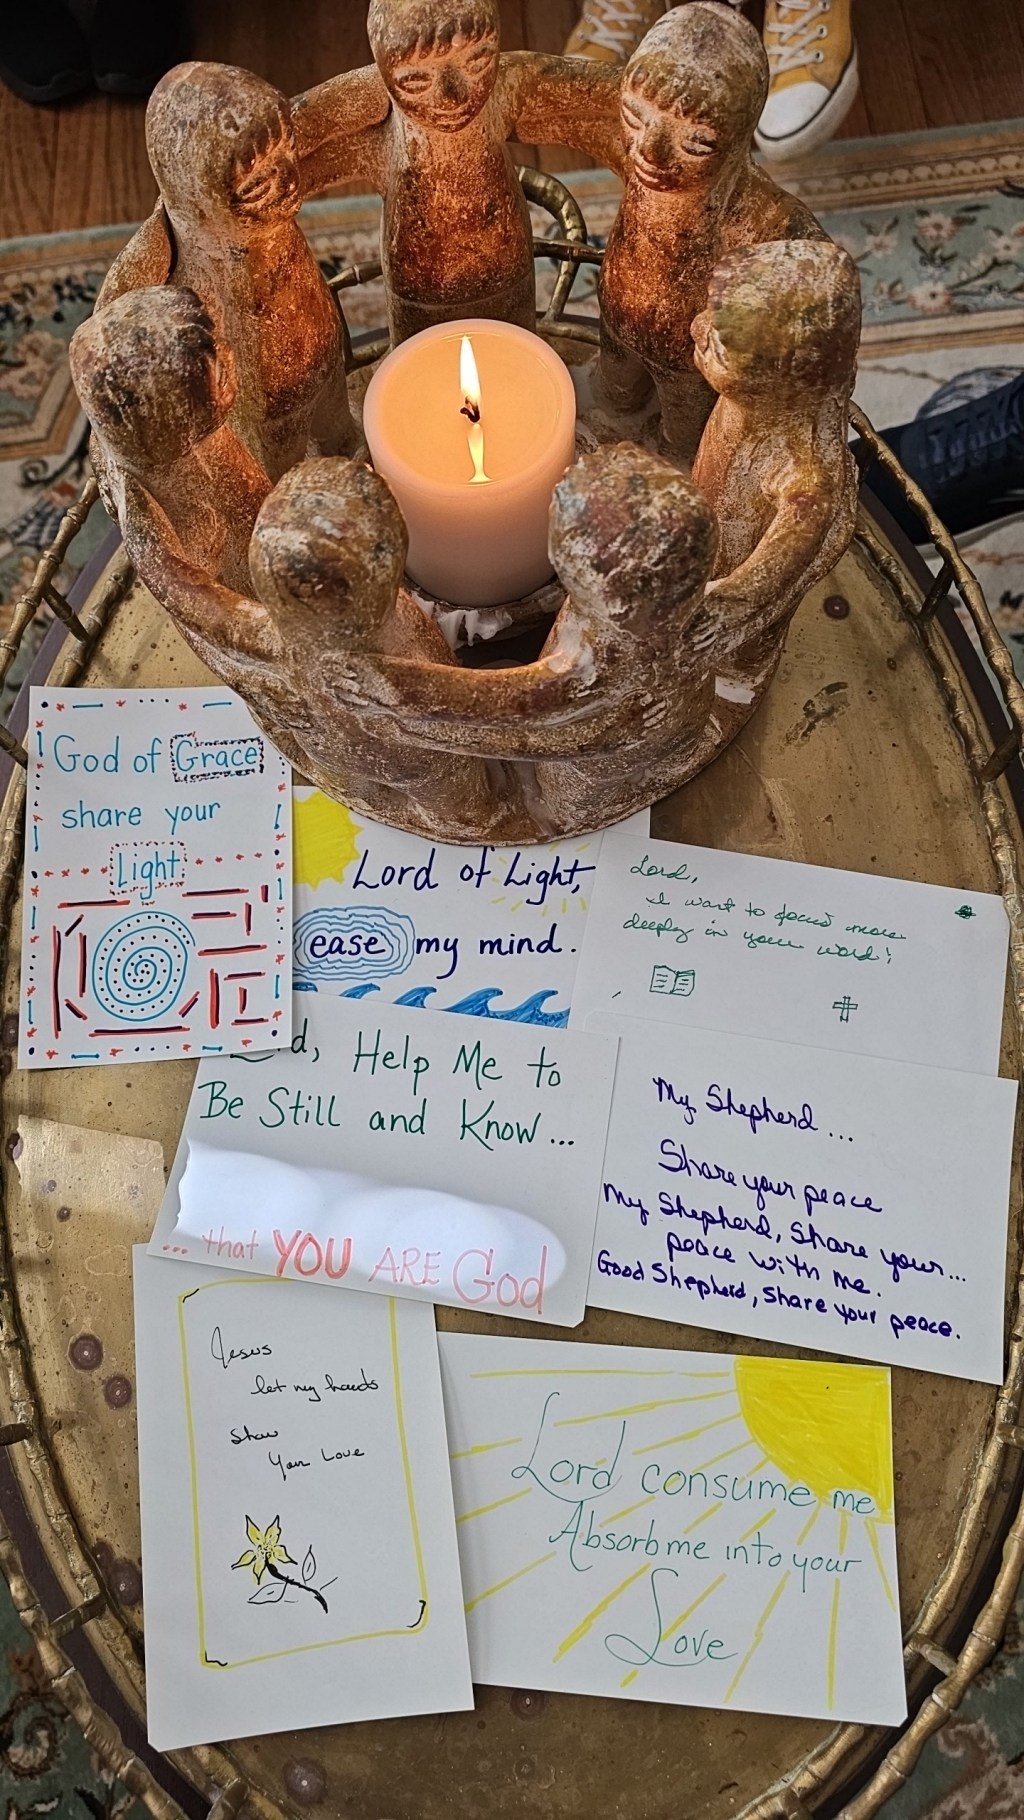 God of Grace
share your
Light
Lord of Light,
ease my mind.
Lord,
I want to focus more
deeply in your word!
d, Help Me to
Be Still and Know...
... that YOU ARE God
My Shepherd...
Share your peace
My Shepherd, Share your...
peace with me.
Good Shepherd, Share your peace.
Jesus
let my hands
Show
Your Love
Lord consume me
Absorb me into your
Love